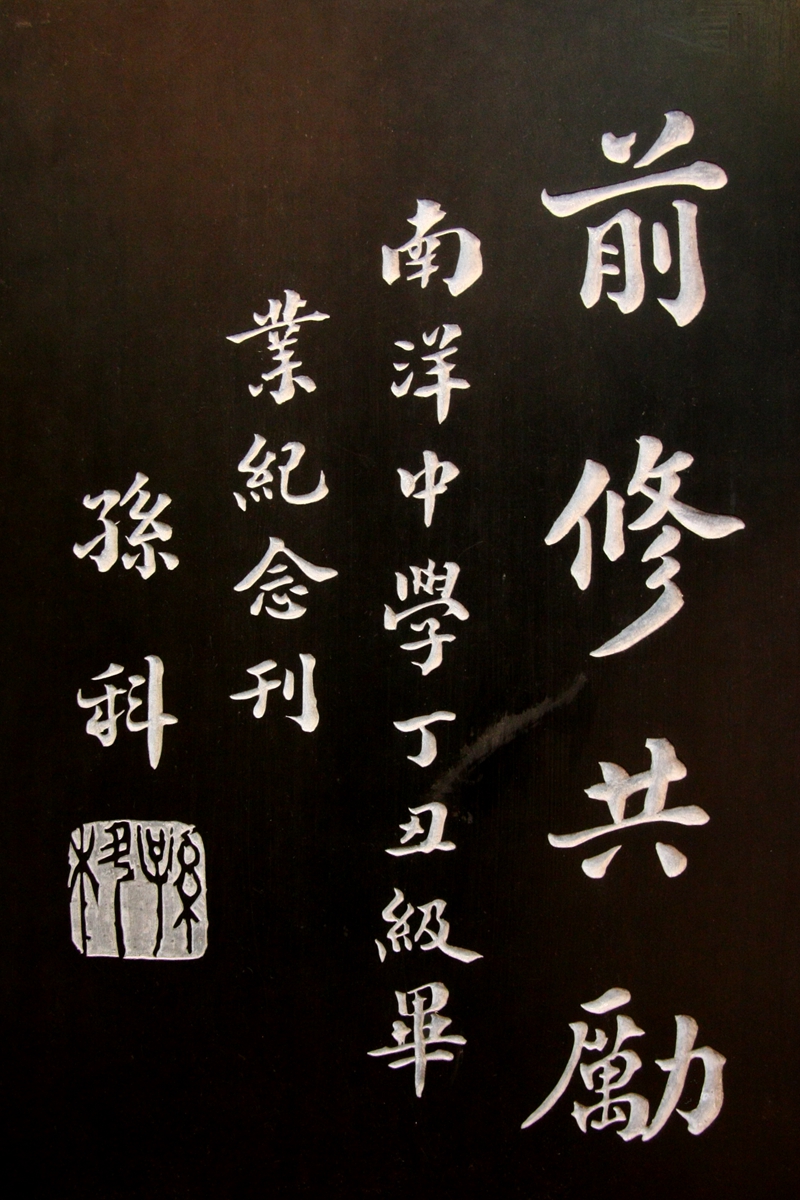 前修共勵
南洋中學丁丑級畢
業紀念刊
孫科